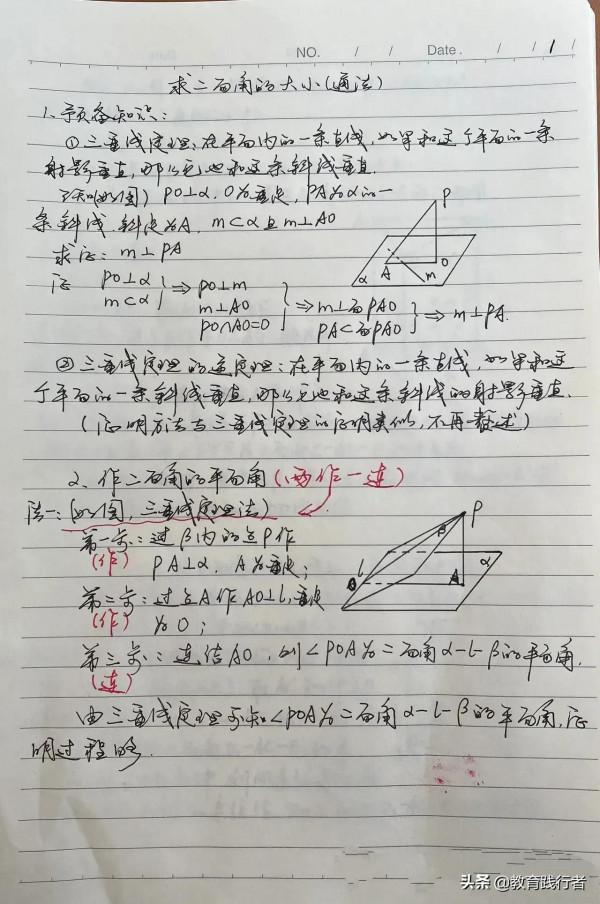 NO. / / Date. / / 1 /
求二面角的大小(通法)
1、预备知识:
①三垂线定理:在平面内的一条直线,如果和这个平面的一条
射影垂直,那么它也和这条斜线垂直.
已知(如图) PO⊥α,O为垂足,PA为α的一
条斜线,斜足为A,m⊂α且m⊥AO
求证:m⊥PA
证 PO⊥α
m⊂α } ⇒ PO⊥m
m⊥AO
PO∩AO=O } ⇒ m⊥面PAO
PA⊂面PAO } ⇒ m⊥PA.
P
α A O m
②三垂线定理的逆定理:在平面内的一条直线,如果和这
个平面的一条斜线垂直,那么它也和这条斜线的射影垂直.
(证明方法与三垂线定理的证明类似,不再赘述)
2、作二面角的平面角(两作一连)
法一:(如图,三垂线定理法)
第一步:过β内的点P作
(作) PA⊥α,A为垂足;
第二步:过点A作AO⊥l,垂足
(作) 为O;
第三步:连结AO,则∠POA为二面角α-l-β的平面角.
(连)
P
β
α
l
O A
由三垂线定理可知∠POA为二面角α-l-β的平面角,证
明过程略.
头条 @教育践行者